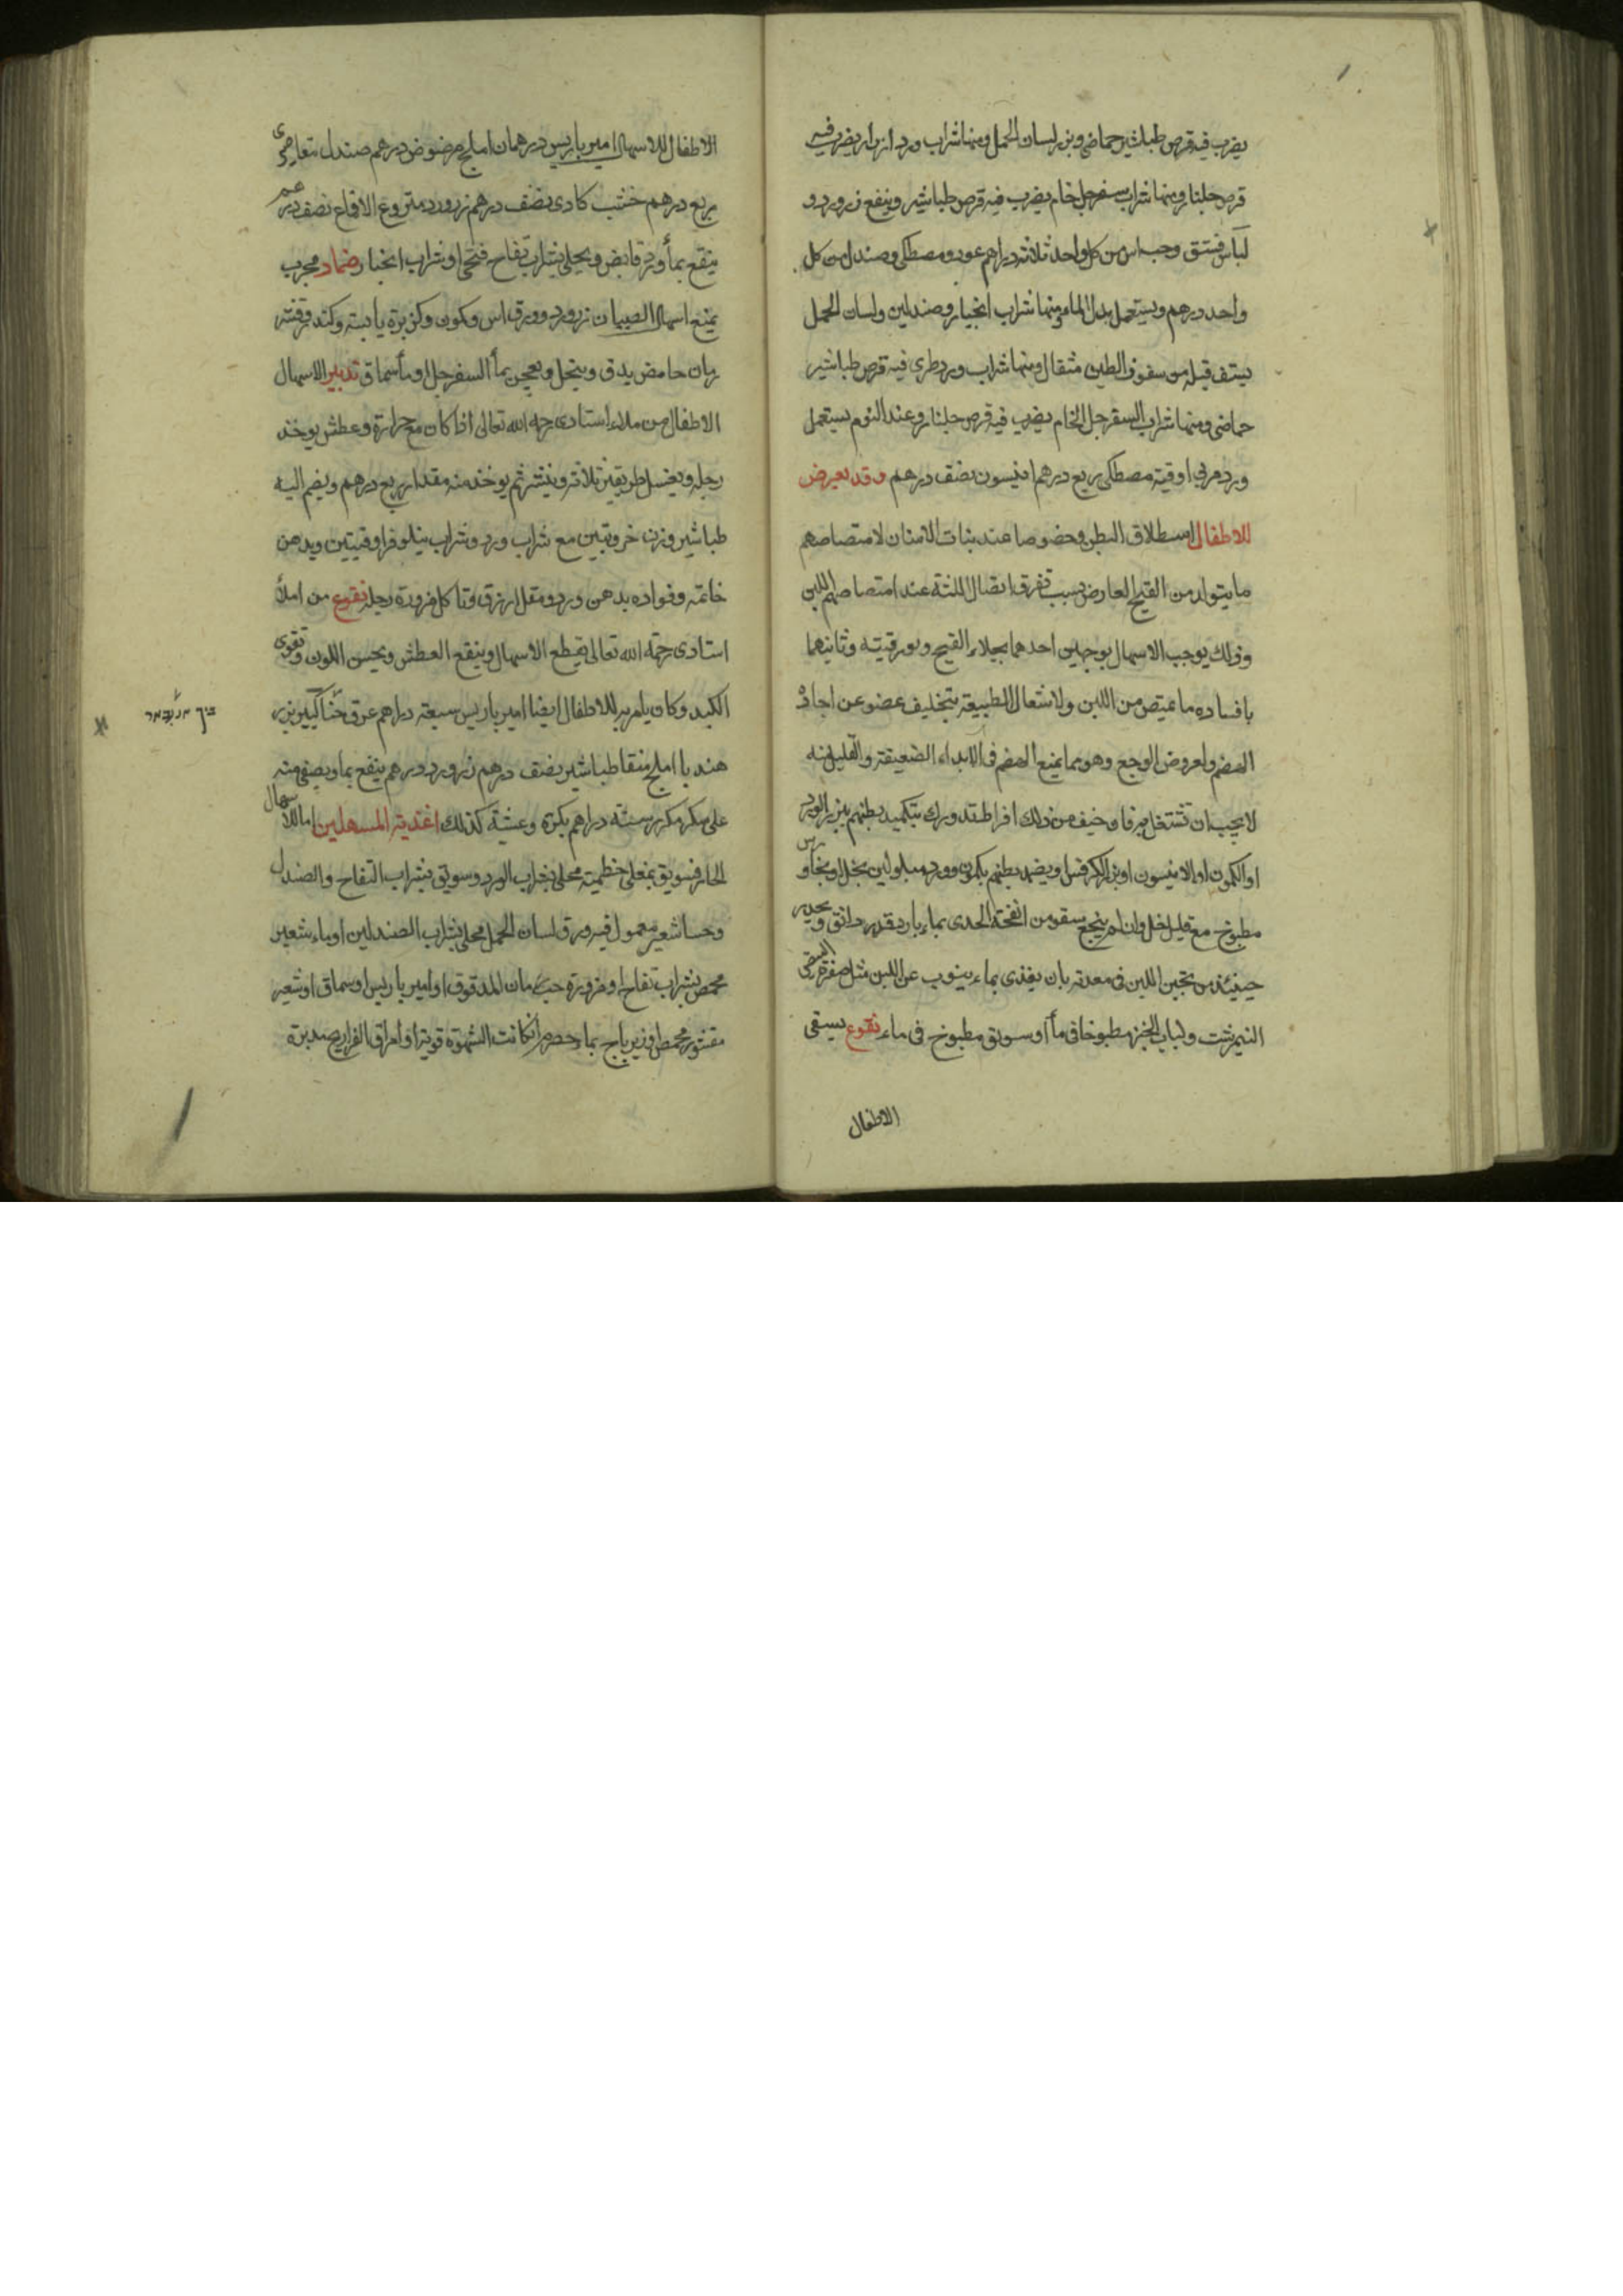 يضرب فيه قرص طباشير حماضى وبزر لسان الحمل ومنها شراب ورد ازرار يضرب فيه
قرص جلنار ومنها شراب سفرجل خام يضرب فيه قرص طباشير وينفع زرورد و
لباس فستق وحب اس من كل واحد ثلاثة دراهم عود ومصطكى وصندل من كل
واحد درهم ويستعمل بدل الماء ومنها شراب انجبار وصندلين ولسان الحمل
يستف قبله من سفوف الطين مثقال ومنها شراب ورد طرى فيه قرص طباشير
حماضى ومنها شراب السفرجل الخام يضرب فيه قرص جلنار وعند النوم يستعمل
ورد مربى اوقية مصطكى ربع درهم انيسون نصف درهم وقد يعرض
للاطفال استطلاق البطن وخصوصا عند نبات الاسنان لامتصاصهم
ما يتولد من القيح العارض بسبب تفرق اتصال اللثة عند امتصاصهم اللبن
وذلك يوجب الاسهال بوجهين احدهما بجلاء القيح وبورقيته وثانيهما
بافساده ما يمتص من اللبن ولاشتغال الطبيعة بتخليف عضو عن اجادة
الهضم ولعروض الوجع وهو مما يمنع الهضم فى الابدان الضعيفة والقليل منه
لا يجب ان تشتغل به فان خيف من ذلك افراط تدورك بتكميد بطنهم ببزر الورد
او الكمون او الانيسون او بزر الكرفس او يضمد بطنهم بكمون وورد مبلولين بخل او بجاورس
مطبوخ مع قليل خل وان لم ينجع سقو من انفحة الجدى بماء بارد قدر دانق ويحذر
حينئذ من تجبن اللبن فى معدته بان يغذى بماء ينوب عن اللبن مثل صفرة البيض
النيمرشت ولباب الخبز مطبوخا فى ماء او سويق مطبوخ فى ماء نقوع يسقى
الاطفال
الاطفال للاسهال امير باريس درهمان املج مرضوض درهم صندل مقاصرى
ربع درهم خشب كادى نصف درهم زرورد منزوع الاقماع نصف درهم
ينقع بماء ورد قابض ويحلى بشراب تفاح فتحى او شراب انجبار ضماد مجرب
يمنع اسهال الصبيان زرورد وورق اس وكمون وكزبرة يابسة وكندر وقشر
رمان حامض يدق وينخل ويعجن بماء السفرجل او بماء سماق تدبير الاسهال
الاطفال من املاء استادى رحمه الله تعالى اذا كان مع حرارة وعطش يوخذ
رجله ويغسل طريقين ثلاثة وينشر ثم يوخذ منه مقدار ربع درهم ويضم اليه
طباشير وزن خروبتين مع شراب ورد وشراب نيلوفر اوقيتين ويدهن
خاتمه وفواده بدهن ورد ومقل ازرق وتاكل مزورة رجلة نقوع من املاء
استادى رحمة الله تعالى يقطع الاسهال وينقع العطش ويحسن اللون وتقوى
الكبد وكان يامر به للاطفال ايضا امير باريس سبعة دراهم عرق بزر
هندبا املج منقا طباشير نصف درهم زرورد درهم ينقع بماء ويصفى منه
على سكر مكرر ستة دراهم بكرة وعشية كذلك اغذية المسهلين اما للاسهال
الحار فسويق بمغلى خطمية محلى بشراب الورد وسويق بشراب التفاح والصندل
وحسا شعير معمول فيه ورق لسان الحمل محلى بشراب الصندلين او ماء شعير
محمص بشراب تفاح او مزورة حب رمان المدقوق او امير باريس او سماق او شعير
مقشور محمص او زيرباج بماء حصرم ان كانت الشهوة قوية او امراق الفراريج مدبرة